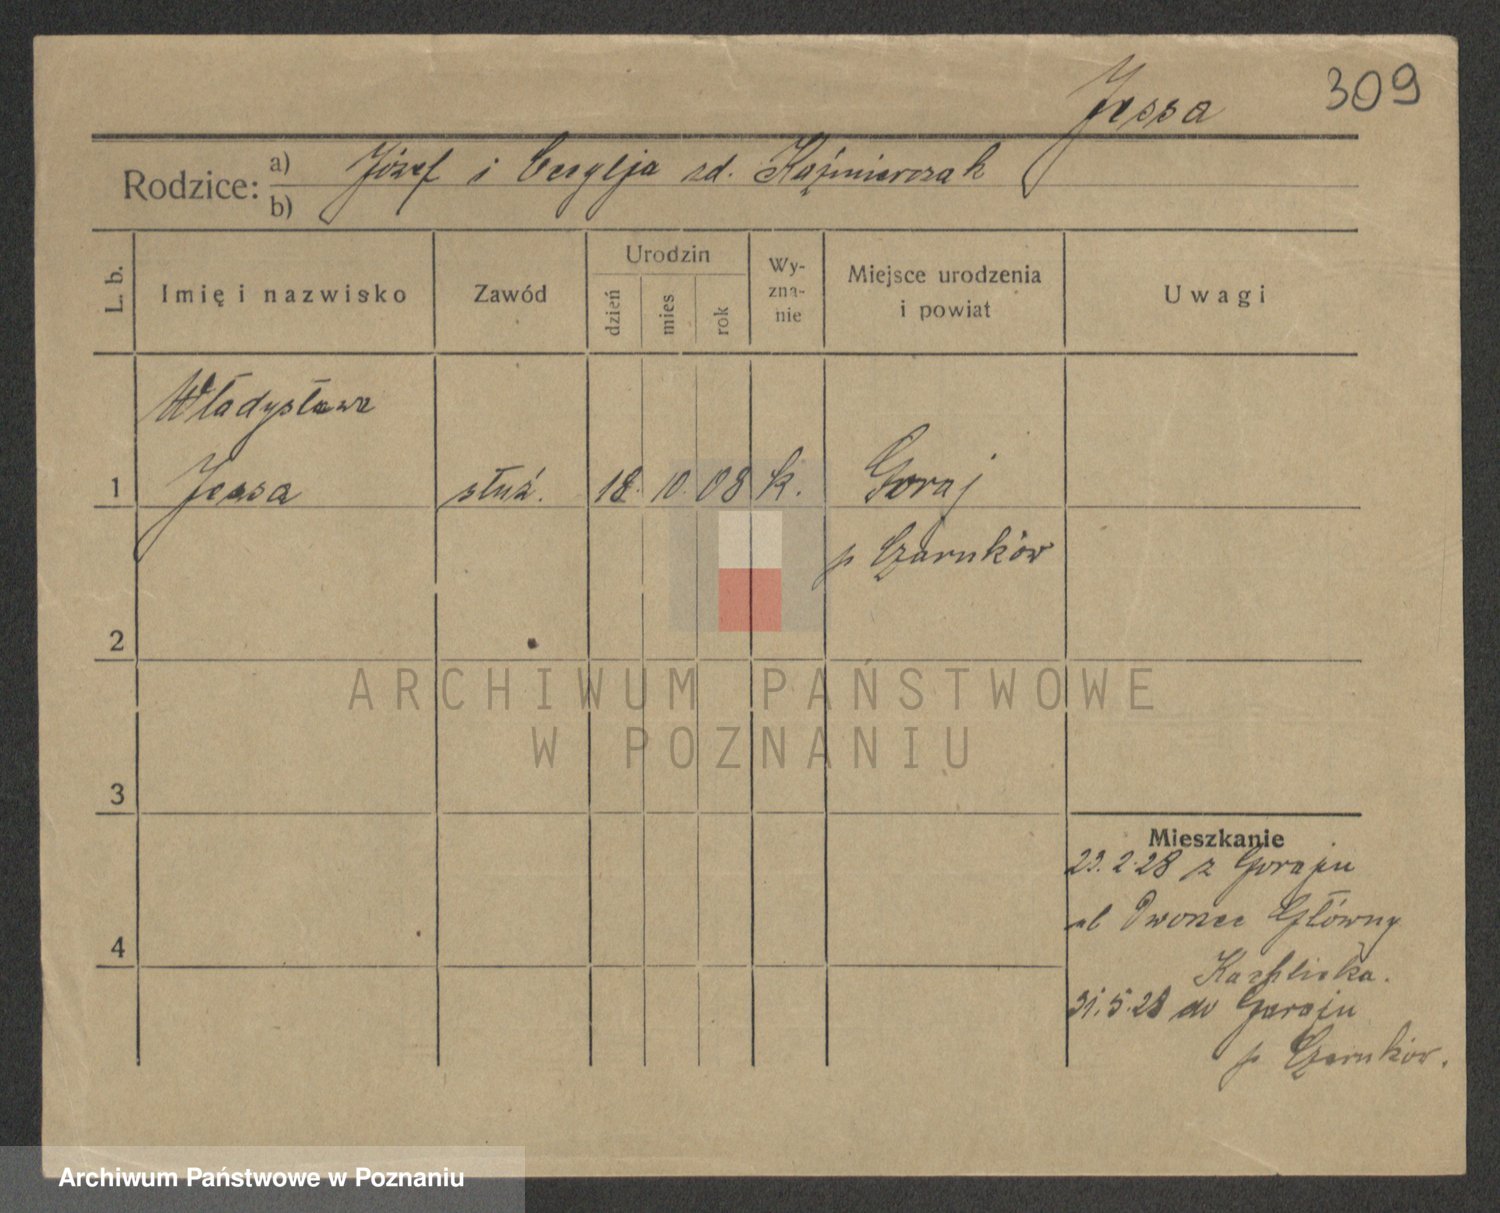 Jessa 309
Rodzice: a) Józef i Cecylja zd. Kaźmierczak
b)
L. b. Imię i nazwisko Zawód Urodzin dzień mies rok Wy-zna-nie Miejsce urodzenia i powiat Uwagi
Władysława
1 Jessa służ. 18. 10. 08 k. Goraj
p Czarnków
2
ARCHIWUM PAŃSTWOWE
W POZNANIU
3
Mieszkanie
23.2.28 z Goraju
Dworzec Główny
4
31.5.28 do Goraju
p Czarnków.
Archiwum Państwowe w Poznaniu